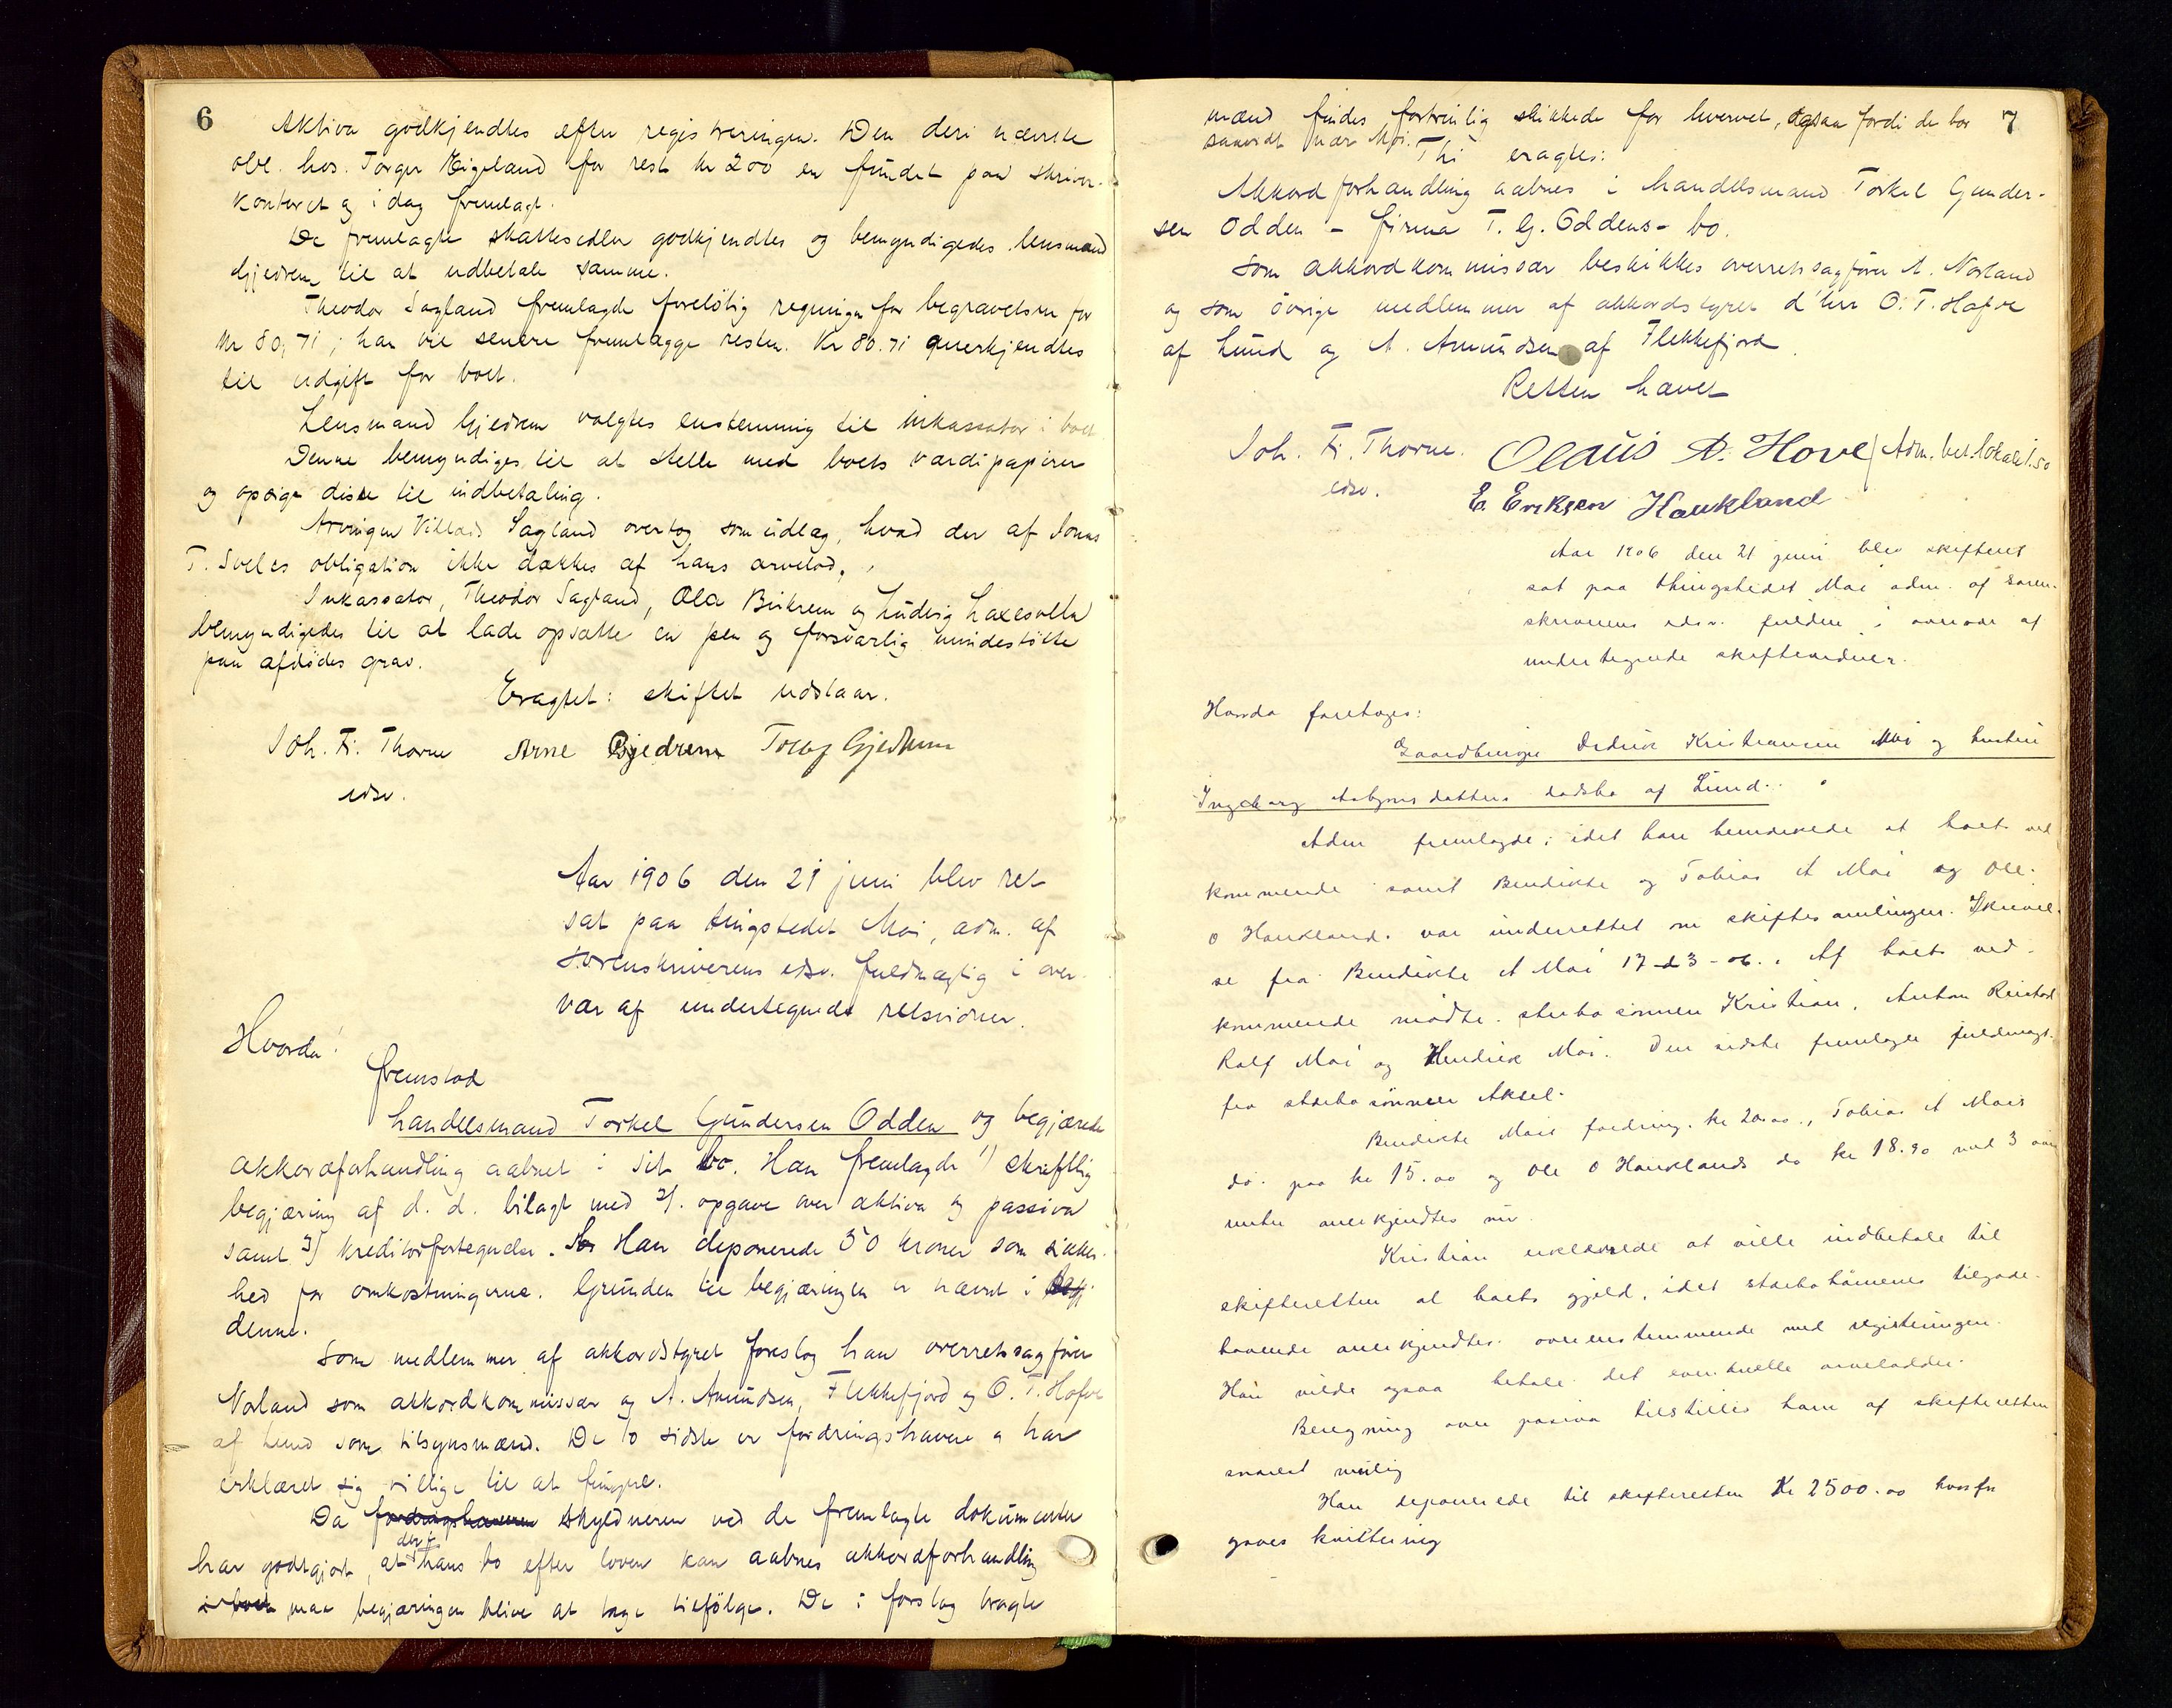 6
Aktiva godkjendtes efter registreringen. Den deri nævnte
obl. hos Torger Eigeland for rest kr 200 er fundet paa skriver-
kontoret og i dag fremlagt.
De fremlagte skattesedler godkjendtes og bemyndigedes lensmand
Gjedrem til at udbetale samme.
Theodor Sagland fremlagde foreløbig regninger for begravelsen for
kr 80,71; han vil senere fremlægge resten. Kr 80.71 anerkjendtes
til udgift for boet.
Lensmand Gjedrem valgtes enstemmig til inkassator i boet
Denne bemyndiges til at stelle med boets værdipapirer
og opsige disse til indbetaling.
Arvingen Sagland overtog som udlæg, hvad der af Jonas
T. Sveles obligation ikke dækkes af hans arvelod.
Inkassator, Theodor Sagland, Ola Birkrem og Ludvig Laxesvella
bemyndigedes til at lade opsætte en pen og forsvarlig mindestøtte
paa afdødes grav.
Eragtet: skiftet udstaar.
Joh. Fr. Thorne Arne Gjedrem Tolleg Gjedrem
edsv.
Aar 1906 den 21 juni blev ret
sat paa tingstedet Moi, adm. af
sorenskriverens edsv. fuldmægtig i over-
vær af undertegnede retsvidner.
Hvorda!
fremstod
handelsmand Torkel Gundersen Odden og begjærede
akkordforhandling aabnet i sit bo. Han fremlagde 1) skriftlig
begjæring af d. d. bilagt med 2). opgave over aktiva og passiva
samt 3) kreditorfortegnelse. Han deponerede 50 kroner som sikker-
hed for omkostningerne. Grunden til begjæringen er nævnt i begj
denne.
Som medlemmer af akkordstyret foreslog han overretssagfører
Norland som akkordkommissær og A. Amundsen, Flekkefjord og O. T. Hafve
af Lund som tilsynsmænd. De to sidste er fordringshavere og har
erklæret sig villige til at fungere.
Da fordringshaveren skyldneren ved de fremlagte dokumenter
har godtgjort, at der i hans bo efter loven kan aabnes akkordforhandling
i boet maa begjæringen blive at tage tilfølge. De i forslag bragte
7
mænd findes fortrinlig skikkede for hvervet, ogsaa fordi de bor
saavidt nær Moi.
Thi eragtes:
Akkordforhandling aabnes i handelsmand Torkel Gunder-
sen Odden - firma T. G. Oddens - bo.
Som akkordkommissær beskikkes overretssagfører A. Norland
og som øvrige medlemmer af akkordstyret d'herr O. T. Hafve
af Lund og A. Amundsen af Flekkefjord.
Retten hævet
Joh. Fr. Thorne. Olaus A. Hove / Adm. bet. lokale 1.50
edsv. E. Eriksen Haukland
Aar 1906 den 21 juni blev skifteret
sat paa thingstedet Moi adm. af soren-
skriverens edsv. fuldm. i overvær af
undertegnede skiftevidner.
Hvorda foretoges:
Gaardbruger Didrik Kristiansen Moi og hustru
Ingeborg Asbjørnsdatters dødsbo af Lund.
Adm fremlagde; idet han bemærkede at boets ved
kommende samt Bendikte og Tobias A Moi og Ole
O Haukland. var underrettet om skiftesamlingen. Skrivel-
se fra Bendikte A Moi 17-3-06. Af boets ved-
kommende mødte. stervbosønnen Kristian, Anton Reistad
Rolf Moi og Hendrik Moi. Den sidste fremlagde fuldmagt.
fra stærbosønnen Aksel.
Bendikte Mois fordring. kr 20.00., Tobias A Mois
do. paa kr 15.00 og Ole O Hauklands do kr 18.90 med 3 aars
renter anerkjendtes
Kristian erklærede at ville indbetale til
skifteretten al boets gjæld, idet stærbobørnenes tilgode-
havende anerkjendtes overensstemmende med registeringen.
Han vilde ogsaa betale det eventuelle arvelodder.
Beregning over passiva tilstilles ham af skifteretten
snarest mulig
Han deponerede til skifteretten Kr 2500.00 hvorfor
gaves kvittering